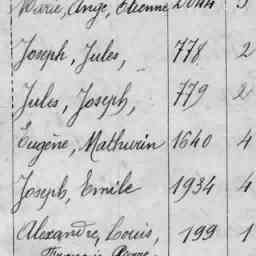 Marie, Ange, Etienne 2044 3
Joseph, Jules, 778 2
Jules, Joseph, 779 2
Eugène, Mathurin 1640 4
Joseph, Emile 1934 4
Alexandre, Louis, 199 1
François, Pierre